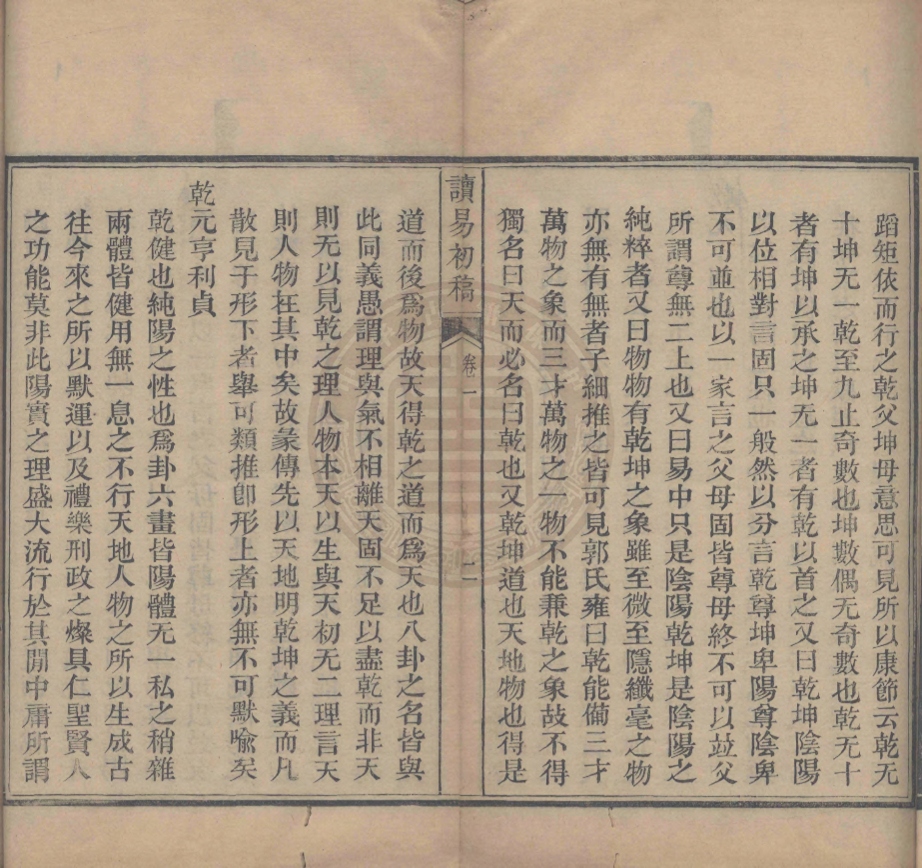 蹈矩依而行之乾父坤母意思可見所以康節云乾无
十坤无一乾至九止奇數也坤數偶无奇數也乾无十
者有坤以承之坤无一者有乾以首之又曰乾坤陰陽
以位相對言固只一般然以分言乾尊坤卑陽尊陰卑
不可並也以一家言之父母固皆尊母終不可以竝父
所謂尊無二上也又曰易中只是陰陽乾坤是陰陽之
純粹者又曰物物有乾坤之象雖至微至隱纖毫之物
亦無有無者子細推之皆可見郭氏雍曰乾能僃三才
萬物之象而三才萬物之一物不能兼乾之象故不得
獨名曰天而必名曰乾也又乾坤道也天地物也得是
讀易初稿
卷一
二
道而後為物故天得乾之道而為天也八卦之名皆與
此同義愚謂理與氣不相離天固不足以盡乾而非天
則无以見乾之理人物本天以生與天初无二理言天
則人物在其中矣故彖傳先以天地明乾坤之義而凡
散見于形下者舉可類推卽形上者亦無不可默喻矣
乾元亨利貞
乾健也純陽之性也為卦六畫皆陽體无一私之稍雜
兩體皆健用無一息之不行天地人物之所以生成古
往今來之所以默運以及禮樂刑政之燦具仁聖賢人
之功能莫非此陽實之理盛大流行於其閒中庸所謂